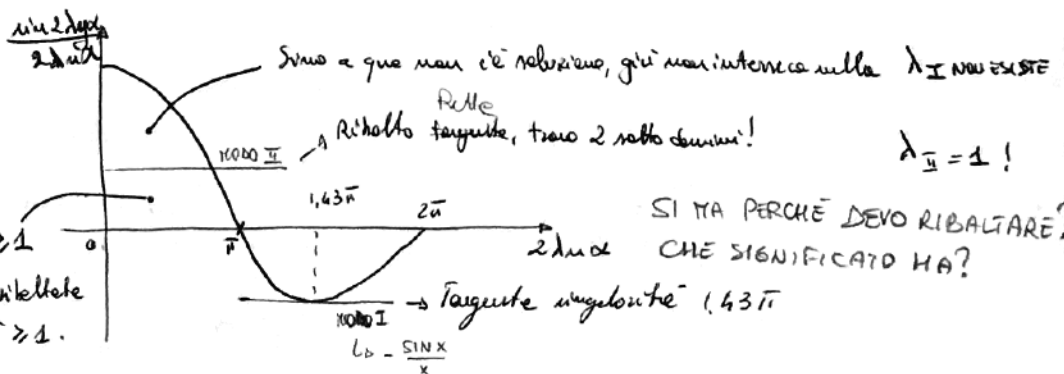 sin 2λnα
2λnα
Sino a qua non c'è soluzione, già non interseca nulla λI NON ESISTE
Rette
Ribalto tangente, trovo 2 sotto domini!
MODO II
λII = 1 !
1,43π
2π
SI MA PERCHÉ DEVO RIBALTARE?
CHE SIGNIFICATO HA?
≥ 1
0
π
2λnα
ribaltate
≥ 1.
→ Tangente singolarità 1,43π
MODO I
- SINX
X